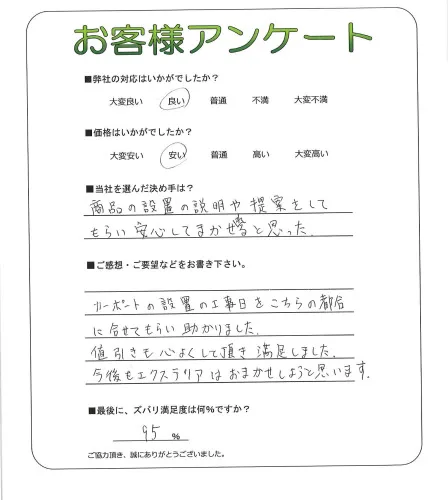 お客様アンケート
■弊社の対応はいかがでしたか？
大変良い 良い 普通 不満 大変不満
■価格はいかがでしたか？
大変安い 安い 普通 高い 大変高い
■当社を選んだ決め手は？
商品の設置の説明や提案をして
もらい安心してまかせると思った.
■ご感想・ご要望などをお書き下さい。
カーポートの設置の工事日をこちらの都合
に合せてもらい助かりました.
値引きも心よくして頂き満足しました.
今後もエクステリアはおまかせしようと思います.
■最後に、ズバリ満足度は何%ですか？
95 %
ご協力頂き、誠にありがとうございました。